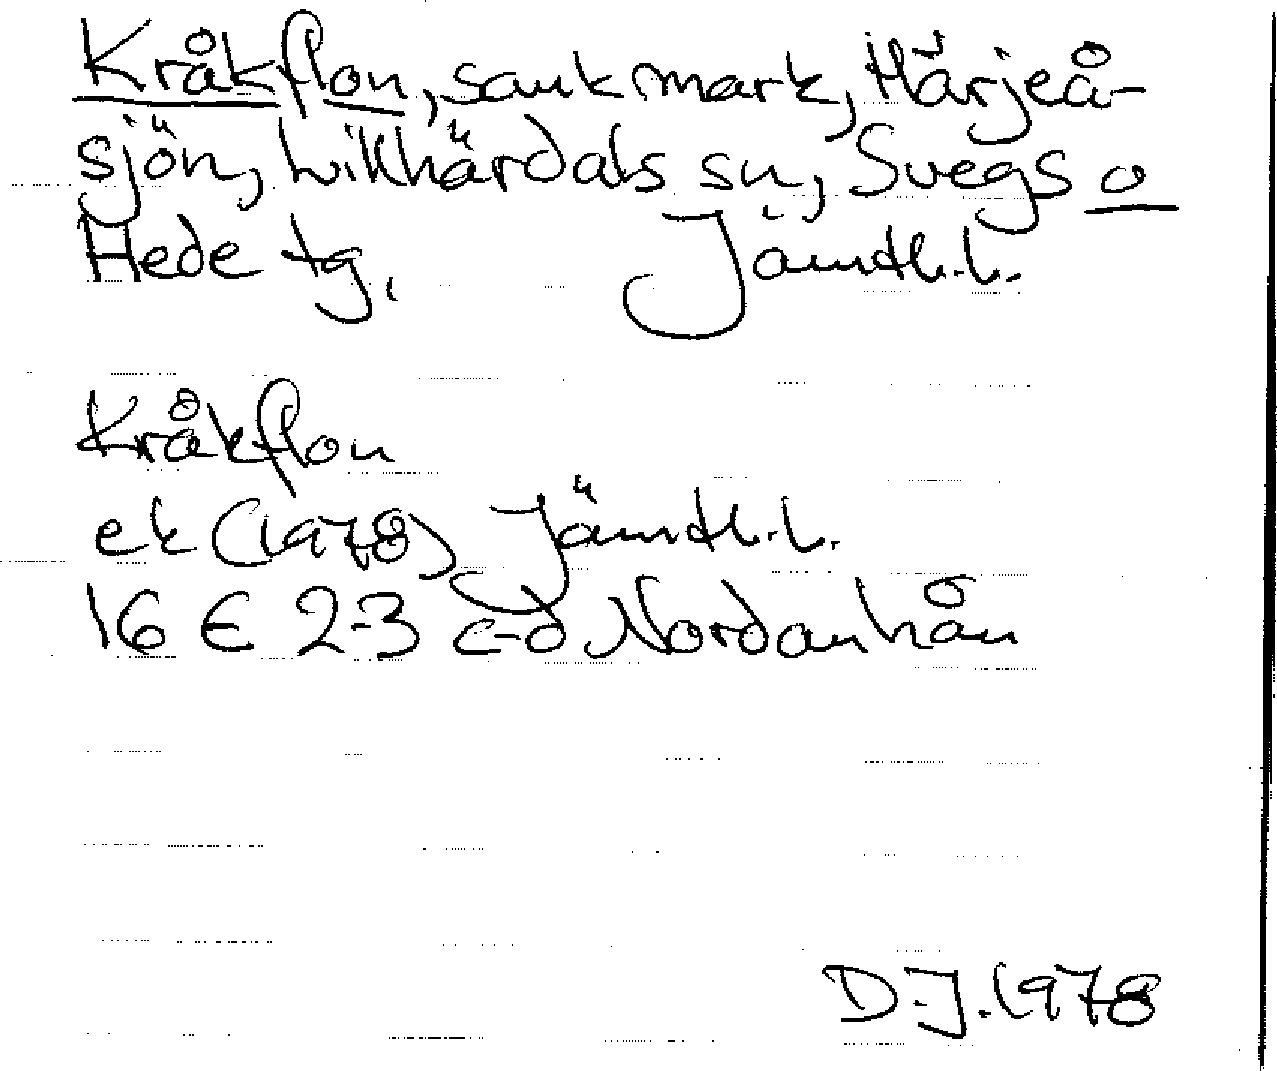 Kråkflon, sank mark, Härjeå-
sjön, Lillhärdals sn, Svegs o
Hede tg, Jämtl.l.
Kråkflon
ek (1978) Jämtl.l.
16 E 2-3 c-d Nordanhån
D.J. 1978